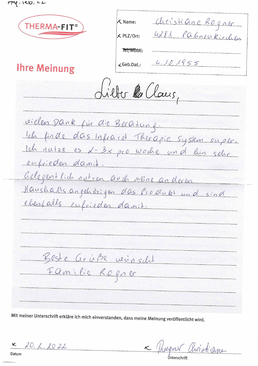 THERMA-FIT®
Name: Christiane Regner
PLZ/Ort: Pabneukirchen
Geb.Dat.: 4.10.1955
Ihre Meinung
Lieber Claus,
vielen Dank für die Beratung.
Ich finde das Infrarot Therapie System super.
Ich nutze es 2-3x pro Woche und bin sehr
zufrieden damit.
Gelegentlich nutzen auch meine anderen
Haushaltsangehörigen das Produkt und sind
ebenfalls zufrieden damit.
Beste Grüße wünscht
Familie Regner
Mit meiner Unterschrift erkläre ich mich einverstanden, dass meine Meinung veröffentlicht wird.
20.2.2022 Regner Christiane
Datum Unterschrift